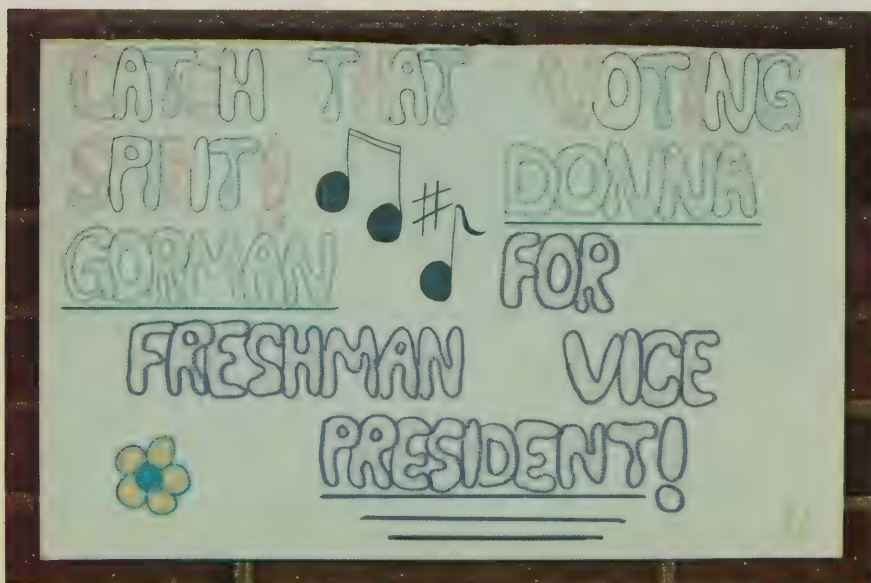 CATCH THAT VOTING
SPIRIT! DONNA
GORMAN FOR
FRESHMAN VICE
PRESIDENT!